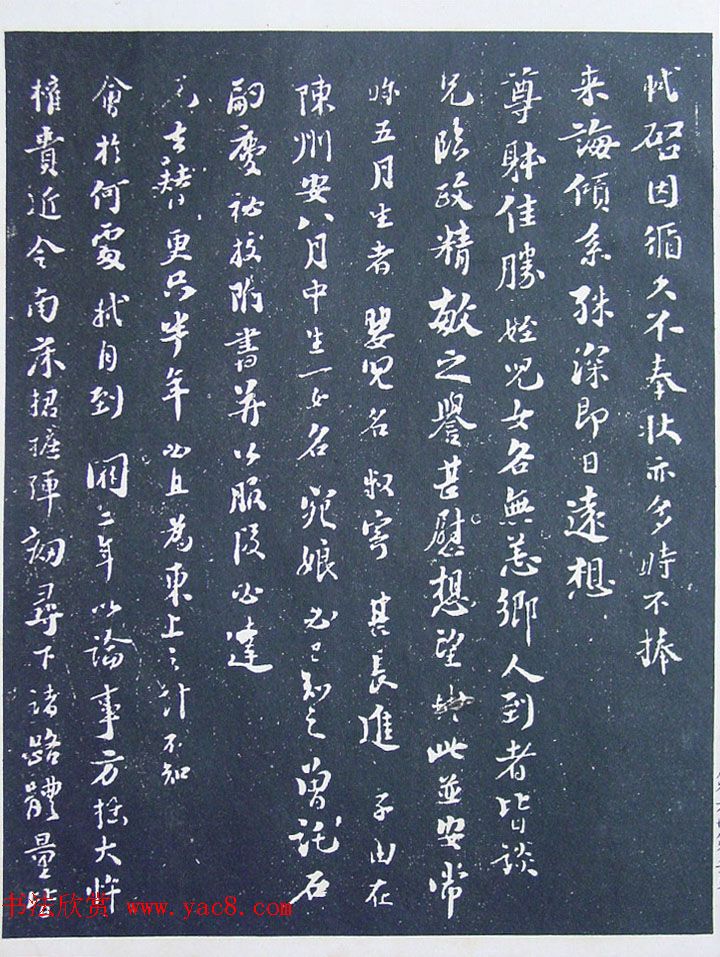 軾啓因循久不奉狀亦多時不捧
来誨傾系殊深即日遠想
尊䏡佳勝姪兒女各無恙鄉人到者皆談
兄臨政精敏之譽甚慰想望此並安常
五月生者嬰兒名叔寄其長進子由在
陳州安八月中生一女名宛娘必已知之曾託石
嗣慶祕校附書并公服段必達
兄去替更只半年必且為東上之計不知
會於何處軾自到闕二年以論事方拙大忤
權貴近令南床捃摭彈劾尋下諸路體量
书法欣赏 www.yac8.com